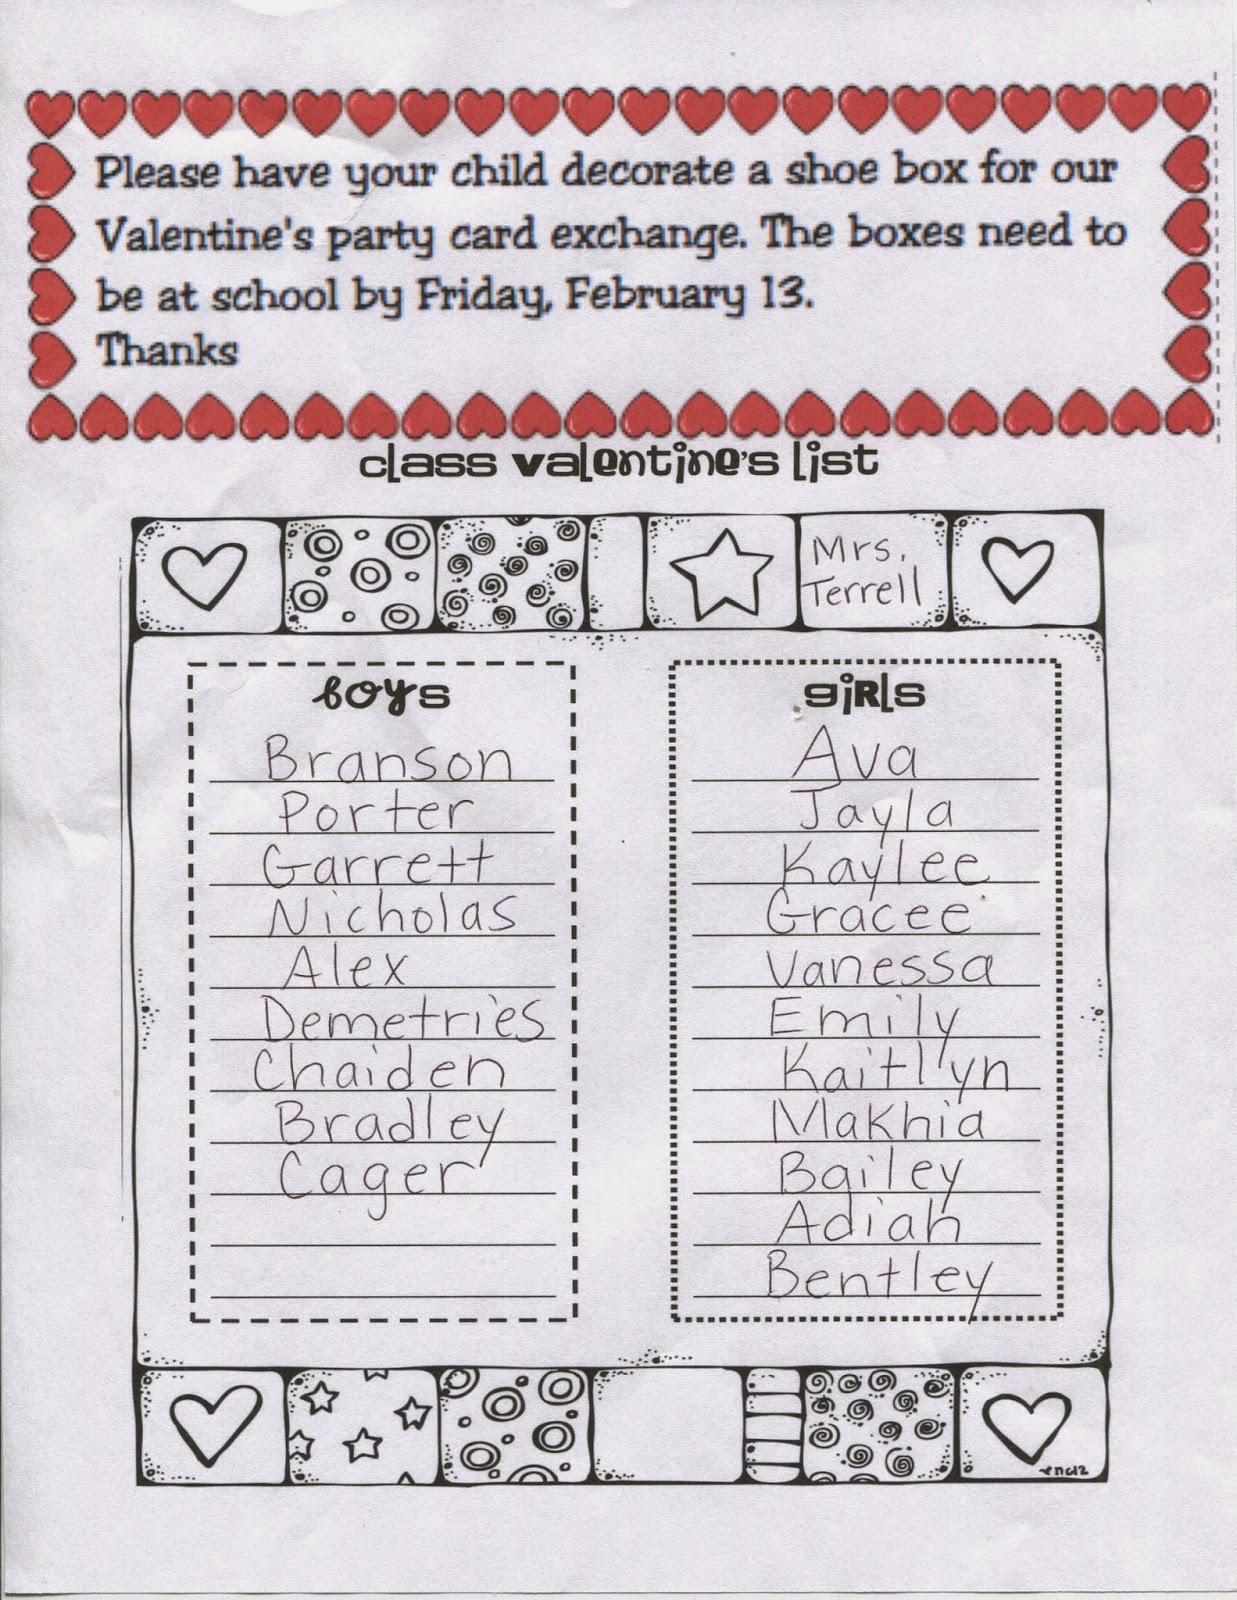 Please have your child decorate a shoe box for our
Valentine's party card exchange. The boxes need to
be at school by Friday, February 13.
Thanks
class valentine's list
Mrs.
Terrell
boys
Branson
Porter
Garrett
Nicholas
Alex
Demetries
Chaiden
Bradley
Cager
girls
Ava
Jayla
Kaylee
Gracee
Vanessa
Emily
Kaitlyn
Makhia
Bailey
Adiah
Bentley